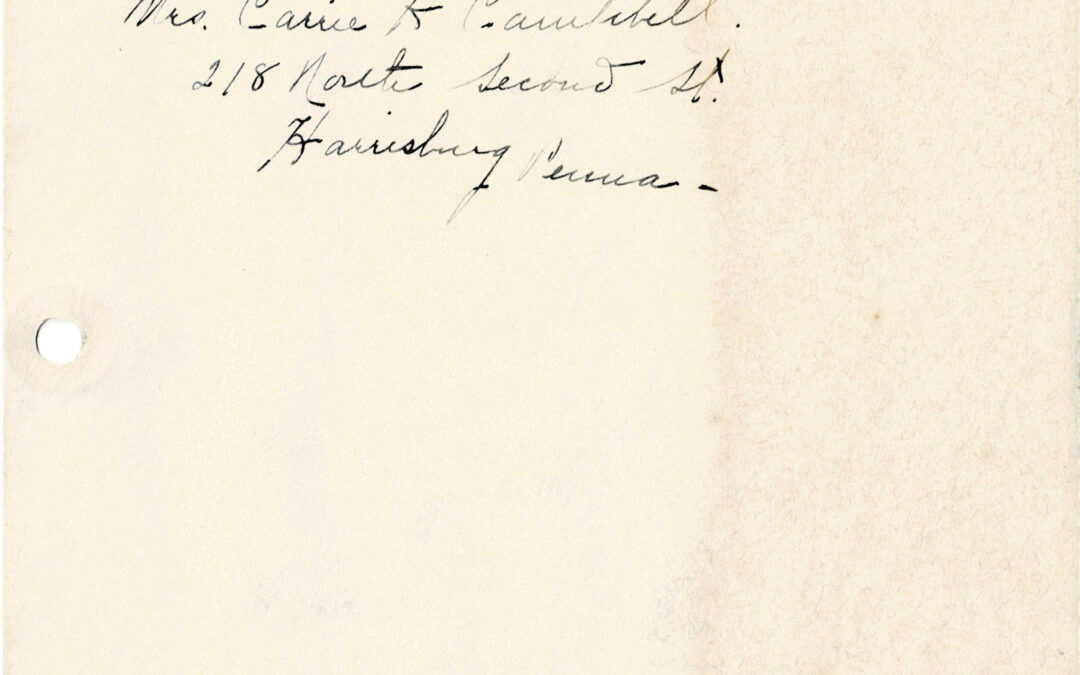 Mrs. Carrie K Campbell.
218 North Second St.
Harrisburg Penna -